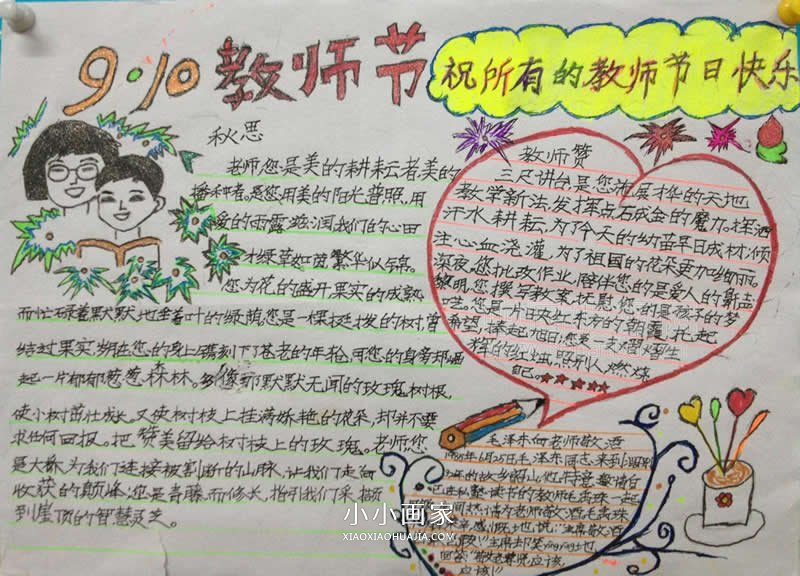 9·10 教师节
祝所有的教师节日快乐
秋思
老师您是美的耕耘者,美的
播种者。是您用美的阳光普照,用
美的雨露滋润,我们的心田
才绿草如茵,繁华似锦。
您为花的盛开,果实的成熟
而忙碌着,默默地垂着叶的绿荫。您是一棵挺拔的树,曾
结过果实,
起一片郁郁葱葱森林。多像那默默无闻的玫瑰树根,
使小树茁壮成长,又使树枝上挂满娇艳的花朵,却并不要
求任何回报。把赞美留给树枝上的玫瑰。老师,您
是大桥,为我们连接被割断的山脉,让我们走向
收获的颠峰;您是青藤,而修长,指引我们采撷
到崖顶的智慧灵芝。
教师赞
三尺讲台,是您施展才华的天地
教学新法,发挥点石成金的魔力。挥洒
汗水耕耘,为了今天的幼苗早日成材;倾
注心血浇灌,为了祖国的花朵更加绚丽。
深夜,您批改作业,陪伴您的是爱人的鼾声
黎明,您撰写教案,抚慰您的是孩子的梦
呓。您是一片映红东方的朝霞,托起
希望,捧起旭日;您是一支熠熠生
辉的红烛,照别人,燃烧
自己。
毛泽东向老师敬酒
1959年6月25日毛泽东同志来到
年的故乡韶山,他
读书的教师毛禹珠一起
为老师敬酒,毛禹珠
地说:"主席敬酒
主席却笑吟吟地
回答"敬老尊贤,应该,
应该!"
小小画家
XIAOXIAOHUAJIA.COM